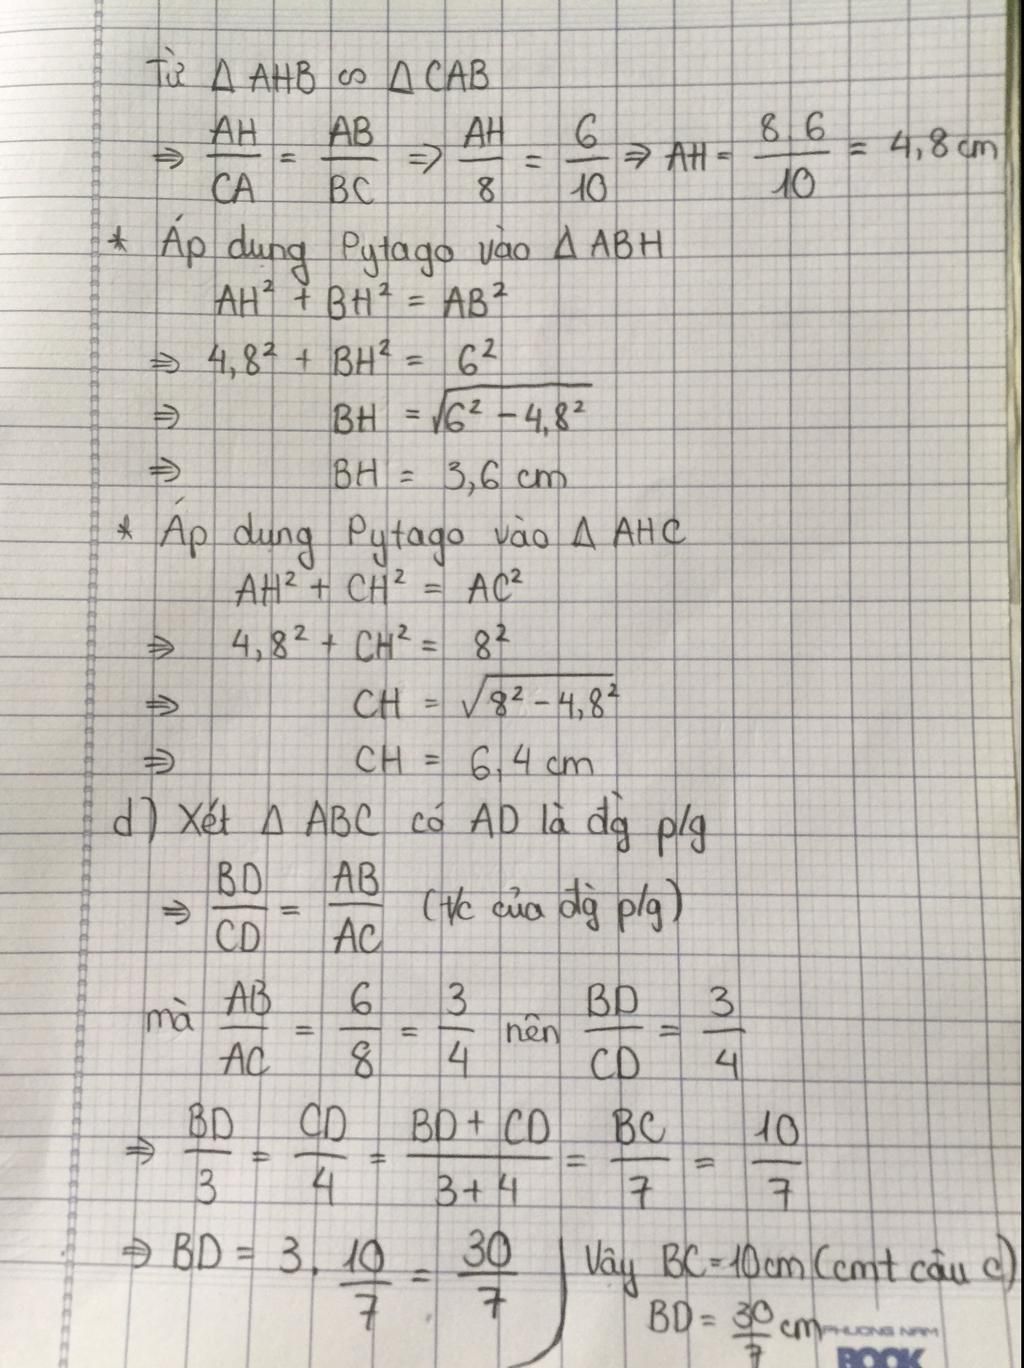 Từ Δ AHB ∽ Δ CAB
⇒ AH/CA = AB/BC ⇒ AH/8 = 6/10 ⇒ AH = 8.6/10 = 4,8 cm
* Áp dụng Pytago vào Δ ABH
AH² + BH² = AB²
⇒ 4,8² + BH² = 6²
⇒ BH = √(6² - 4,8²)
⇒ BH = 3,6 cm
* Áp dụng Pytago vào Δ AHC
AH² + CH² = AC²
⇒ 4,8² + CH² = 8²
⇒ CH = √(8² - 4,8²)
⇒ CH = 6,4 cm
d) Xét Δ ABC có AD là đg̀ p/g
⇒ BD/CD = AB/AC (t/c của đg̀ p/g)
mà AB/AC = 6/8 = 3/4 nên BD/CD = 3/4
⇒ BD/3 = CD/4 = (BD + CD)/(3+4) = BC/7 = 10/7
⇒ BD = 3.10/7 = 30/7
Vậy BC = 10cm (cmt câu c)
BD = 30/7 cm
PHUONG NAM
BOOK